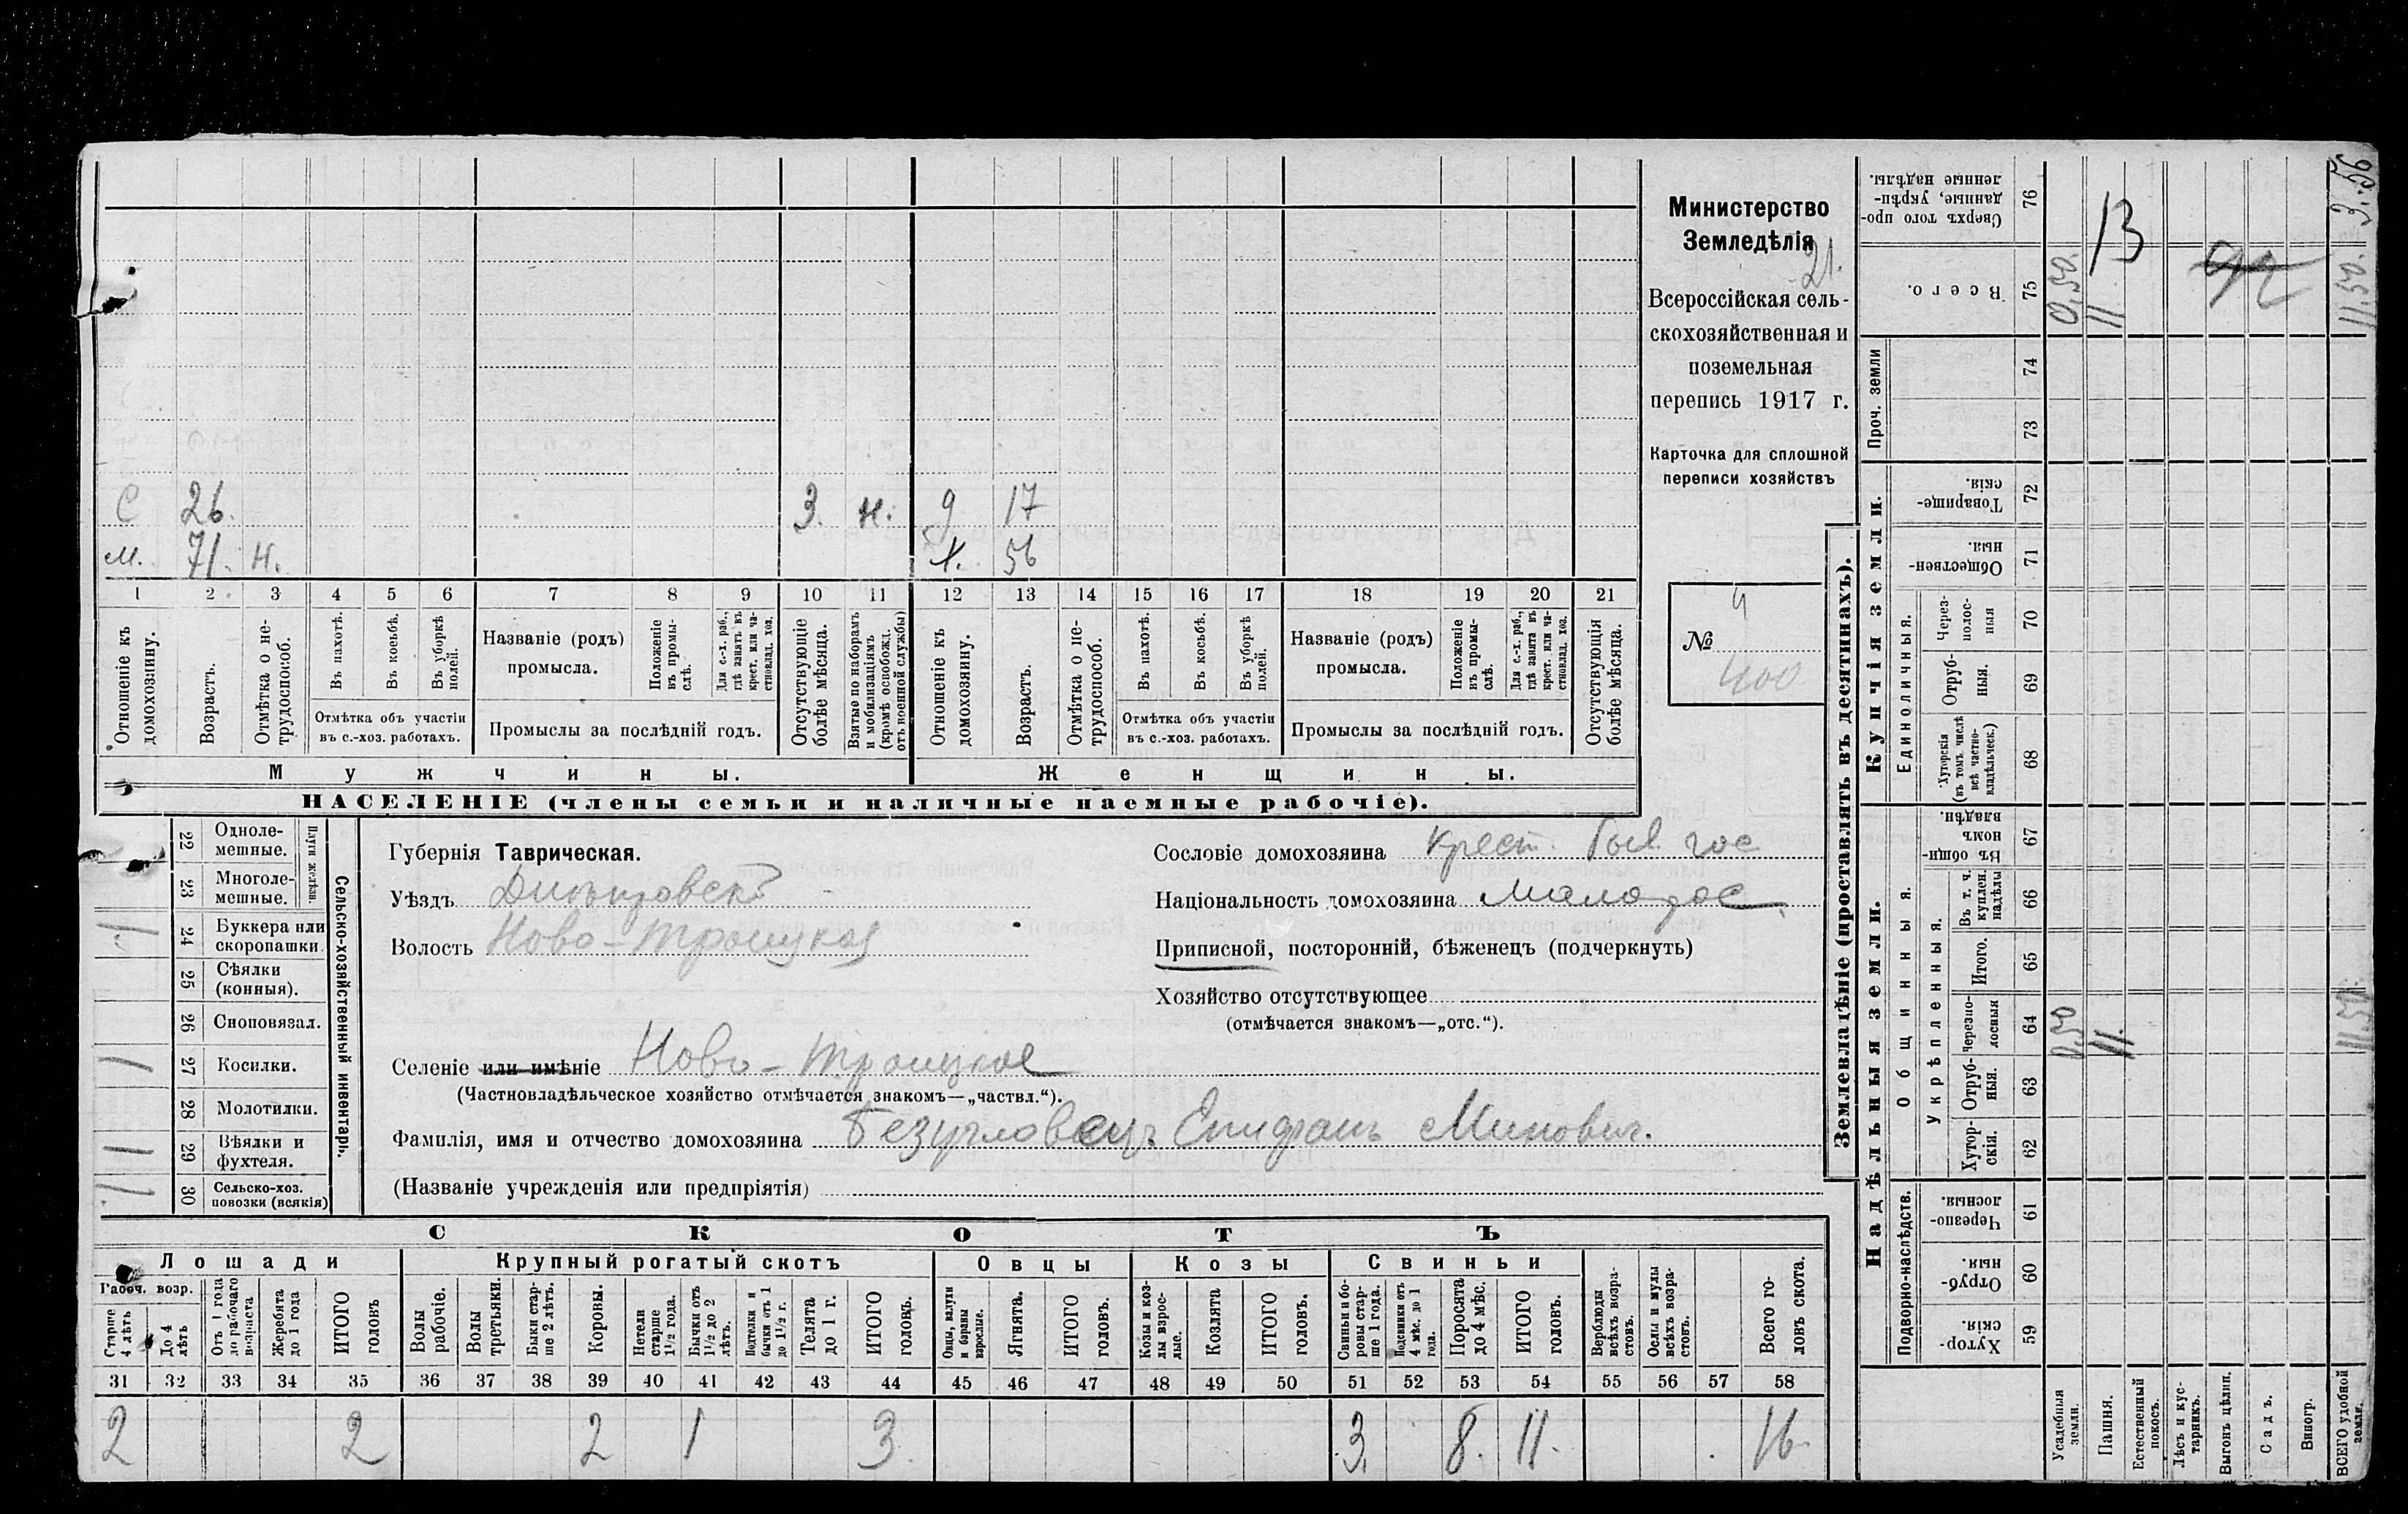 С 26. 3. н. д 17
м. 71. н. ж. 56
1 2 3 4 5 6 7 8 9 10 11 12 13 14 15 16 17 18 19 20 21
Отношеніе къ домохозяину.
Возрастъ.
Отмѣтка о нетрудоспособ.
Въ пахотѣ.
Въ косьбѣ.
Въ уборкѣ полей.
Отмѣтка объ участіи
въ с.-хоз. работахъ.
Названіе (родъ)
промысла.
Положеніе въ промыслѣ.
Для с.-х. раб., гдѣ занятъ въ крест. или частновлад. хоз.
Промыслы за послѣдній годъ.
Отсутствующіе болѣе мѣсяца.
Взятые по наборамъ и мобилизаціямъ (кромѣ освобожд. отъ военной службы)
Отношеніе къ домохозяину.
Возрастъ.
Отмѣтка о нетрудоспособ.
Въ пахотѣ.
Въ косьбѣ.
Въ уборкѣ полей.
Отмѣтка объ участіи
въ с.-хоз. работахъ.
Названіе (родъ)
промысла.
Положеніе въ промыслѣ.
Для с.-х. раб., гдѣ занята въ крест. или частновлад. хоз.
Промыслы за послѣдній годъ.
Отсутствующія болѣе мѣсяца.
Мужчины.
Женщины.
НАСЕЛЕНІЕ (члены семьи и наличные наемные рабочіе).
Министерство
Земледѣлія
21.
Всероссійская сель-
скохозяйственная и
поземельная
перепись 1917 г.
Карточка для сплошной
переписи хозяйствъ
4
№
400
Сельско-хозяйственный инвентарь.
Плуги желѣзн.
22 Одноле-
мешные.
23 Многоле-
мешные.
1 24 Буккера или
скоропашки.
25 Сѣялки
(конныя).
26 Сноповязал.
1 27 Косилки.
28 Молотилки.
1 29 Вѣялки и
фухтеля.
30 Сельско-хоз.
повозки (всякія)
Губернія Таврическая.
Уѣздъ Днѣпровскъ
Волость Ново-Троицкая
Селеніе или имѣніе Ново-Троицкое
(Частновладѣльческое хозяйство отмѣчается знакомъ—„частвл.“).
Фамилія, имя и отчество домохозяина Епифанъ Минович.
(Названіе учрежденія или предпріятія)
Сословіе домохозяина крест. гос
Національность домохозяина малорос.
Приписной, посторонній, бѣженецъ (подчеркнуть)
Хозяйство отсутствующее
(отмѣчается знакомъ—„отс.“).
СКОТЪ
Лошади
Крупный рогатый скотъ
Овцы
Козы
Свиньи
Рабоч. возр.
Старше 4 лѣтъ
До 4 лѣтъ
Отъ 1 года до рабочаго возраста
Жеребята до 1 года
ИТОГО головъ
Волы рабочіе.
Волы третьяки.
Быки старше 2 лѣтъ.
Коровы.
Нетели старше 1½ года.
Бычки отъ 1½ до 2 лѣтъ.
Подтелки и бычки отъ 1 до 1½ г.
Телята до 1 г.
ИТОГО головъ.
Овцы, валухи и бараны взрослые.
Ягнята.
ИТОГО головъ.
Козы и козлы взрослые.
Козлята
ИТОГО головъ.
Свиньи и боровы старше 1 года.
Подсвинки отъ 4 мѣс. до 1 года.
Поросята до 4 мѣс.
ИТОГО головъ.
Верблюды всѣхъ возрастовъ.
Ослы и мулы всѣхъ возрастовъ.
Всего головъ скота.
31 32 33 34 35 36 37 38 39 40 41 42 43 44 45 46 47 48 49 50 51 52 53 54 55 56 57 58
2 2 2 1 3 3. 8. 11. 16.
Землевладѣніе (проставлять въ десятинахъ).
Купчія земли.
Надѣльныя земли.
Сверхъ того проданные, укрѣпленные надѣлы. 76 13 3.56
Всего. 75 0,50. 11 11,50.
Проч. земли
74
73
Товарищескія. 72
Общественныя. 71
Единоличныя.
Черезполосныя 70
Отрубныя. 69
Хуторскія (въ томъ числѣ всѣ частновладѣльческ.) 68
Общинныя.
Въ общиномъ владѣн. 67
Укрѣпленныя.
Въ т. ч. куплен. надѣлы 66
Итого. 65
Черезполосныя 64 0,50 11. 11,50.
Отрубныя. 63
Хуторскія. 62
Подворно-наслѣдств.
Черезполосныя. 61
Отрубныя. 60
Хуторскія. 59
Усадебныя земли.
Пашня.
Естественный покосъ.
Лѣсъ и кустарникъ.
Выгонъ цѣлин.
Садъ.
Виногр.
ВСЕГО удобной земли.